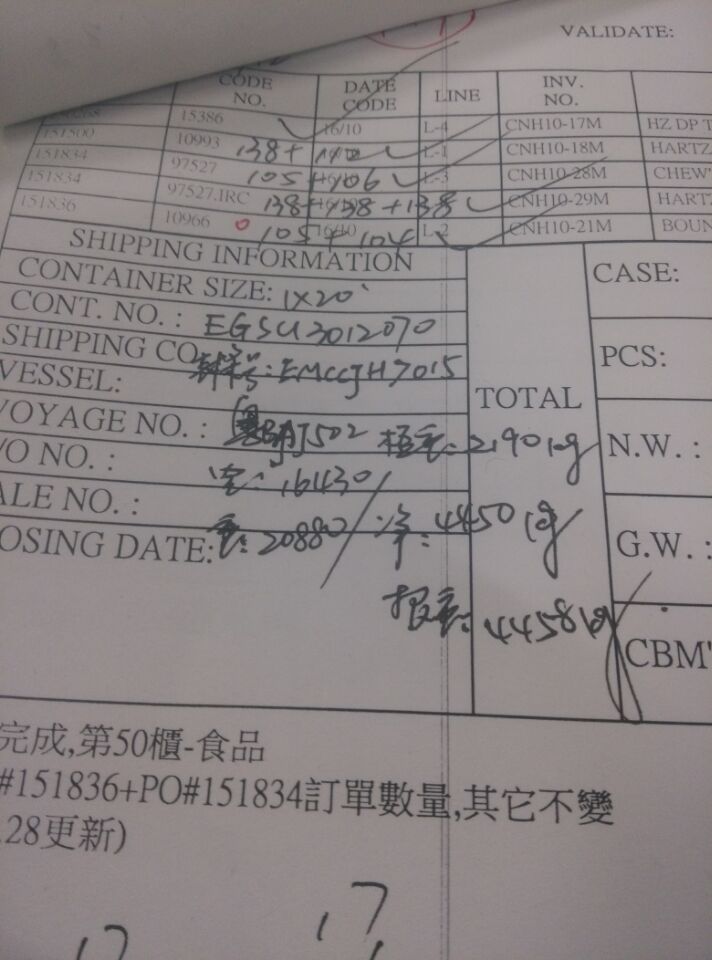 VALIDATE:
CODE NO. DATE CODE LINE INV. NO.
15386 16/10 L-4 CNH10-17M HZ DP T
151500 10993 138+ L-1 CNH10-18M HARTZ
151834 97527 105+106 L-3 CNH10-28M CHEW'
151834 97527.IRC 138+138+138 CNH10-29M HARTZ
151836 10966 105+104 16/10 L-2 CNH10-21M BOUN
SHIPPING INFORMATION
CONTAINER SIZE: 1X20'
CONT. NO.: EGSU3012070
SHIPPING CO. EMCCJH7015
VESSEL:
VOYAGE NO.: J502 柜重:2190kg
/O NO.: 空:16430
ALE NO.:
OSING DATE: 重:20880 净:4450kg
报重:4458kg
TOTAL
CASE:
PCS:
N.W.:
G.W.:
CBM'
完成,第50櫃-食品
#151836+PO#151834訂單數量,其它不變
.28更新)
17
17